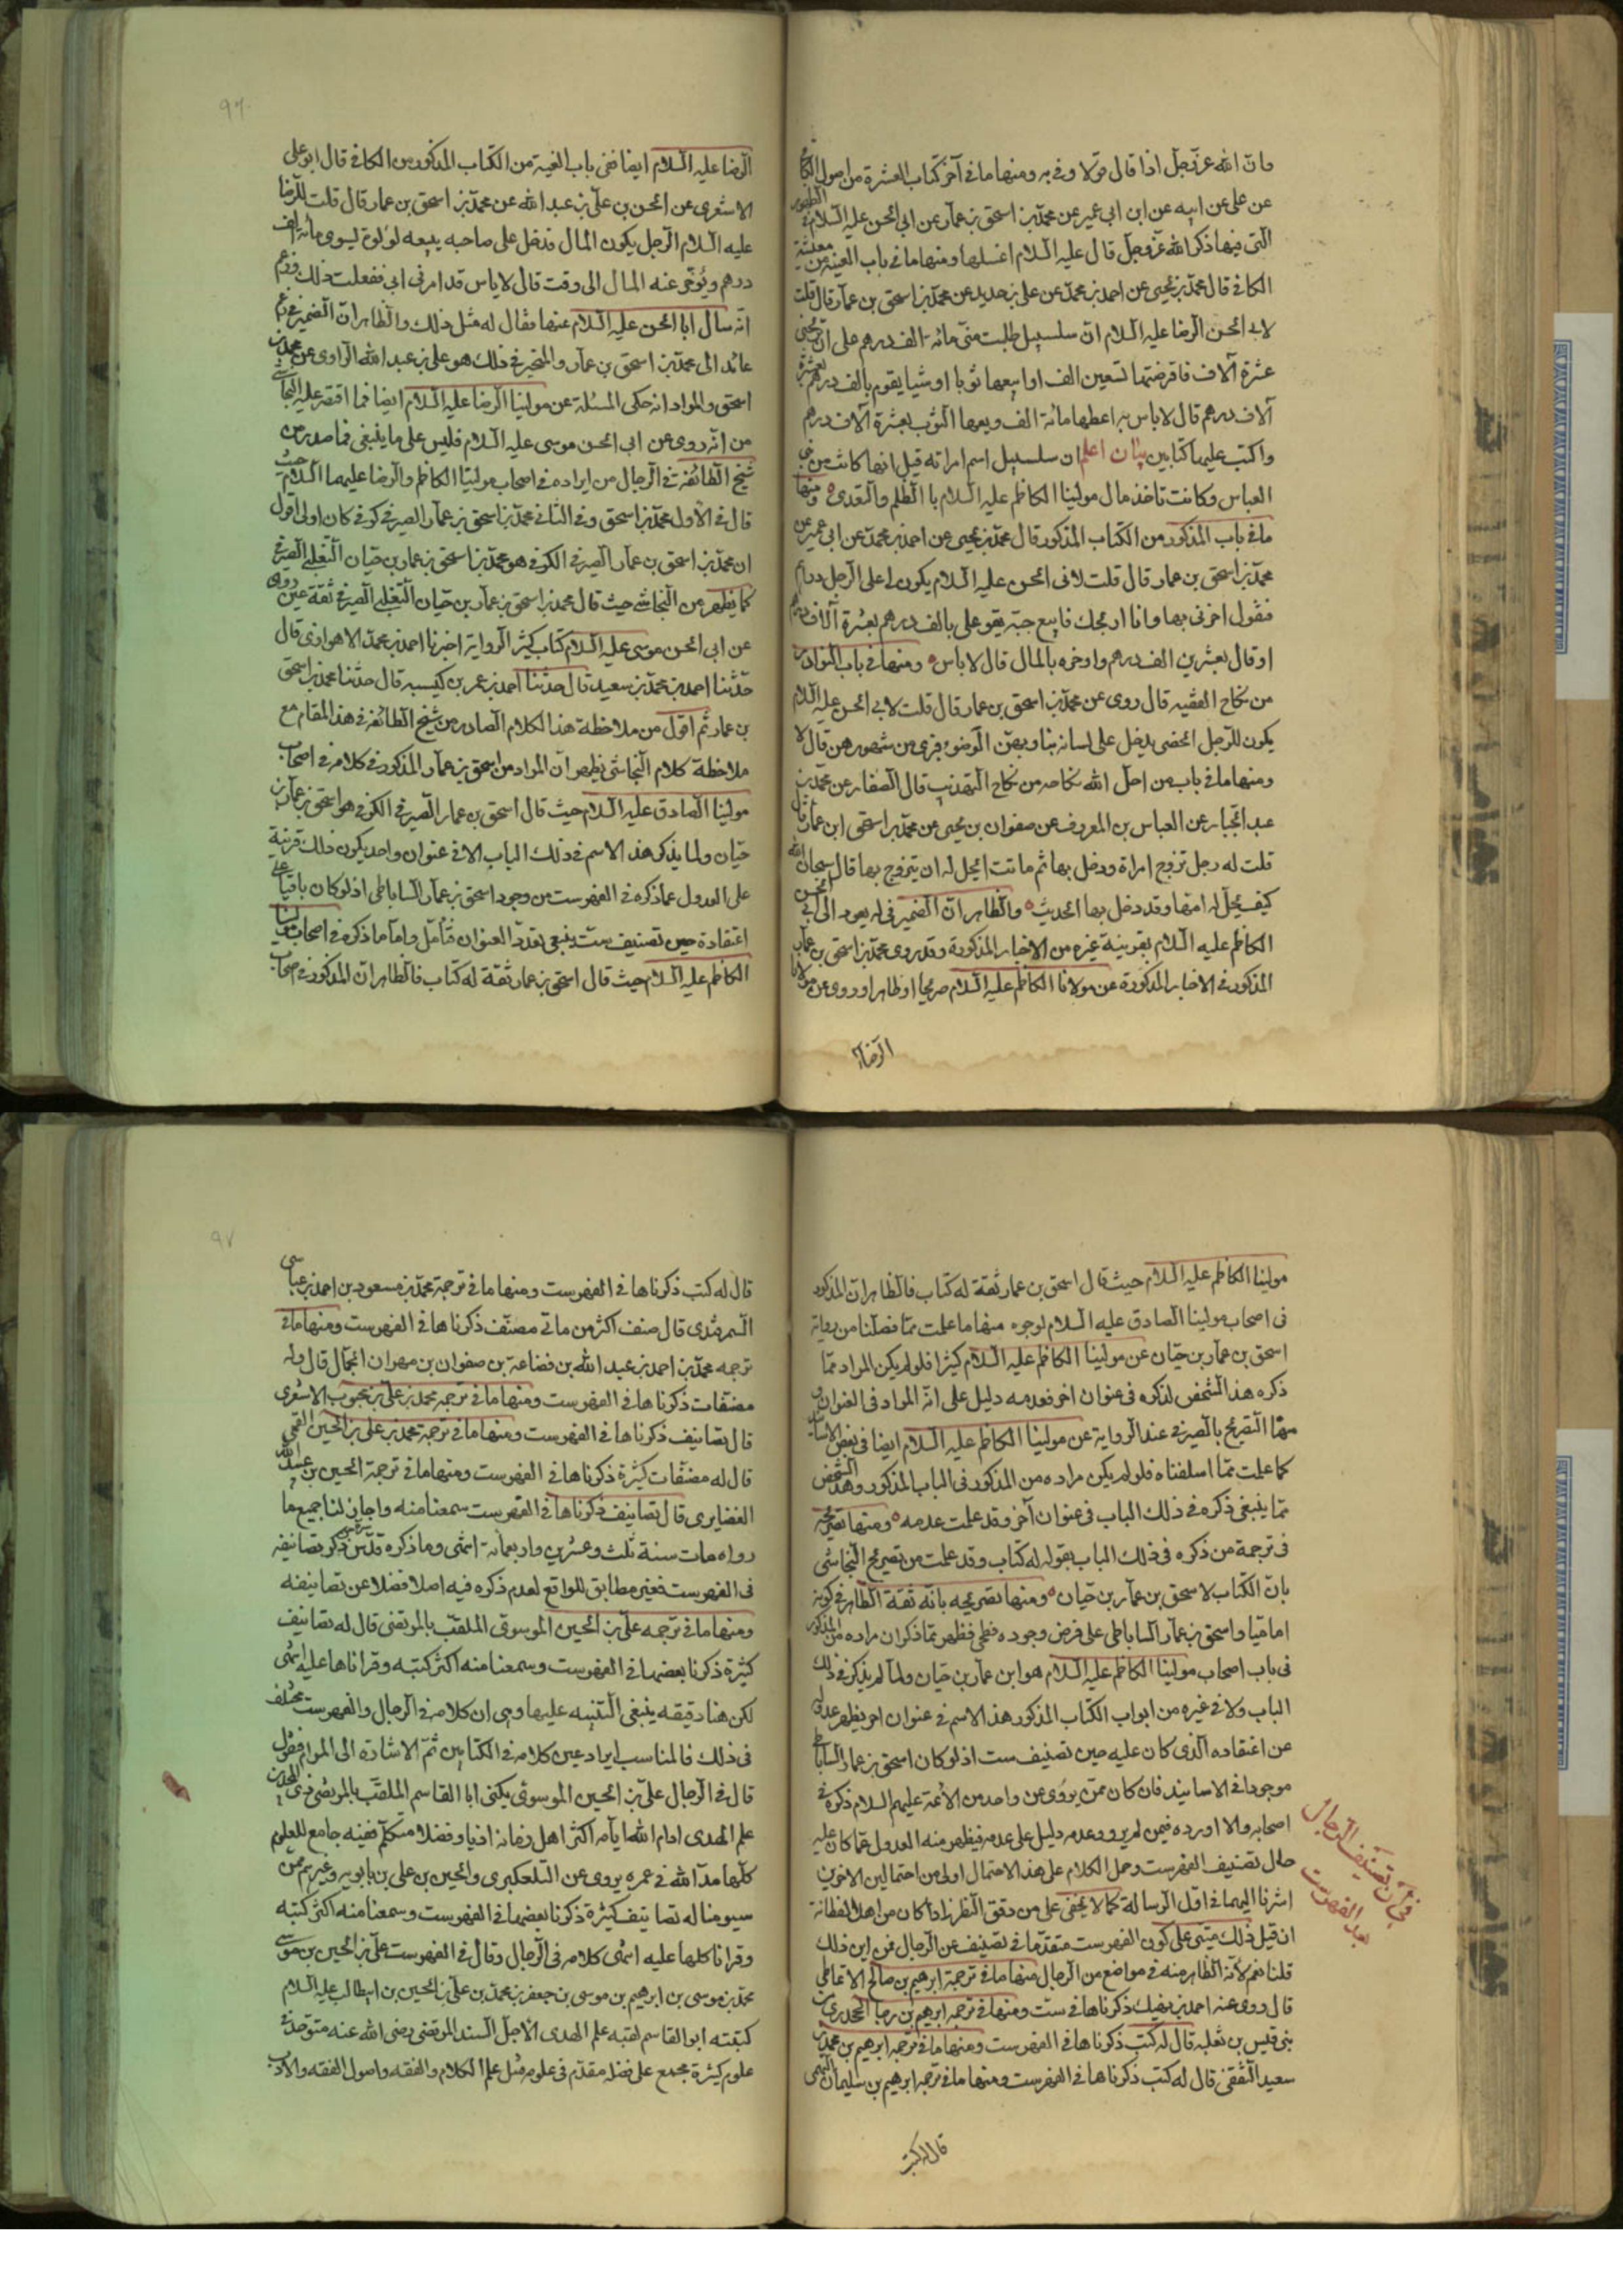 وان الله عز وجل اذا قال قولا وفى به ومنها ما فى آخر كتاب العشرة من اصول الكافى
عن على عن ابيه عن ابن ابى عمير عن محمد بن اسحق بن عمار عن ابى الحسن عليه السلام فى الظهور
التى فيها ذكر الله عز وجل قال عليه السلام اغسلها ومنها ما فى باب العينة من معيشة
الكافى قال محمد بن يحيى عن احمد بن محمد عن على بن حديد عن محمد بن اسحق بن عمار قال قلت
لابى الحسن الرضا عليه السلام ان سلسبيل طلبت منى مائة الف درهم على ان تربحنى
عشرة آلاف فاقرضتها تسعين الف او ابيعها ثوبا او شيا يقوم بالف درهم بعشرة
آلاف درهم قال لا باس به اعطها مائة الف وبعها الثوب بعشرة آلاف درهم
واكتب عليها كتابين بيان اعلم ان سلسبيل اسم امراته قيل انها كانت من بنى
العباس وكانت تاخذ مال مولينا الكاظم عليه السلام با الظلم والتعدى ومنها
ما فى باب المذكور من الكتاب المذكور قال محمد بن يحيى عن احمد بن محمد عن ابى عمير عن
محمد بن اسحق بن عمار قال قلت لابى الحسن عليه السلام يكون لى على الرجل دراهم
فيقول اخرنى بها وانا اربحك فابيع جبة يقوم على بالف درهم بعشرة آلاف درهم
او قال بعشرين الف درهم واوخره بالمال قال لا باس ومنها فى باب النوادر
من نكاح الفقيه قال روى عن محمد بن اسحق بن عمار قال قلت لابى الحسن عليه السلام
يكون للرجل الخصى يدخل على نسائه يناولهن الوضوء فيرى من شعورهن قال لا
ومنها ما فى باب من احل الله نكاحه من نكاح التهذيب قال الصفار عن محمد بن
عبد الجبار عن العباس بن المعروف عن صفوان بن يحيى عن محمد بن اسحق ابن عمار قال
قلت له رجل تزوج امراة ودخل بها ثم ماتت ايحل له ان يتزوج بها قال سبحان الله
كيف يحل له امها وقد دخل بها الحديث والظاهر ان الضمير فى له يعود الى ابى الحسن
الكاظم عليه السلام بقرينة غيره من الاخبار المذكورة وقد روى محمد بن اسحق بن عمار
المذكور فى الاخبار المذكورة عن مولانا الكاظم عليه السلام صريحا او ظاهرا وروى عن مولانا
الرضا
٩٦
الرضا عليه السلام ايضا ففى باب العينة من الكتاب المذكور من الكافى قال ابو على
الاشعرى عن الحسن بن على بن عبد الله عن محمد بن اسحق بن عمار قال قلت للرضا
عليه السلام الرجل يكون المال فدخل على صاحبه يبيعه لؤلؤة تسوى مائة الف
درهم ويؤخر عنه المال الى وقت قال لا باس قد امرنى ابى ففعلت ذلك وزعم
انه سال ابا الحسن عليه السلام عنها فقال له مثل ذلك والظاهر ان الضمير فى زعم
عائد الى محمد بن اسحق بن عمار والمخبر فى ذلك هو على بن عبد الله الراوى عن محمد بن
اسحق والمراد انه حكى المسئلة عن مولينا الرضا عليه السلام ايضا فما اقتصر عليه النجاشى
من انه روى عن ابى الحسن موسى عليه السلام فليس على ما ينبغى فما صدر من
شيخ الطائفة فى الرجال من ايراده فى اصحاب مولينا الكاظم والرضا عليهما السلام حيث
قال فى الاول محمد بن اسحق وفى الثانى محمد بن اسحق بن عمار الصيرفى كوفى كان اولى اقول
ان محمد بن اسحق بن عمار الصيرفى الكوفى هو محمد بن اسحق بن عمار بن حيان التغلبى الصيرفى
كما يظهر من النجاشى حيث قال محمد بن اسحق بن عمار بن حيان التغلبى الصيرفى ثقة عين روى
عن ابى الحسن موسى عليه السلام كتاب كثير الرواية اخبرنا احمد بن محمد الاهوازى قال
حدثنا احمد بن محمد بن سعيد قال حدثنا احمد بن عمر بن كيسبه قال حدثنا محمد بن اسحق
بن عمار ثم اقول من ملاحظة هذا الكلام الصادر من شيخ الطائفة فى هذا المقام مع
ملاحظة كلام النجاشى يظهر ان المراد من اسحق بن عمار المذكور فى كلامه فى اصحاب
مولينا الصادق عليه السلام حيث قال اسحق بن عمار الصيرفى الكوفى هو اسحق بن عمار بن
حيان ولما يذكر هذا الاسم فى ذلك الباب الا فى عنوان واحد يكون ذلك قرينة
على العدول عما ذكره فى الفهرست من وجود اسحق بن عمار الساباطى اذ لو كان باقيا على
اعتقاده حين تصنيف ست ينبغى تعدد العنوان فتأمل واما ما ذكره فى اصحاب مولينا
الكاظم عليه السلام حيث قال اسحق بن عمار ثقة له كتاب فالظاهر ان المذكور فى اصحاب
مولينا الكاظم عليه السلام حيث قال اسحق بن عمار ثقة له كتاب فالظاهر ان المذكور
فى اصحاب مولينا الصادق عليه السلام لوجوه منها ما علمت مما فصلنا من رواية
اسحق بن عمار بن حيان عن مولينا الكاظم عليه السلام كثيرا فلو لم يكن المراد مما
ذكره هذا الشخص لذكره فى عنوان اخر فعدمه دليل على انه المراد فى العنوان و
منها التصريح بالصيرفى عند الرواية عن مولينا الكاظم عليه السلام ايضا فى بعض الاسانيد
كما علمت مما اسلفناه فلو لم يكن مراده من المذكور فى الباب المذكور وهذا الشخص
مما ينبغى ذكره فى ذلك الباب فى عنوان آخر وقد علمت عدمه ومنها تصريحه
فى ترجمة من ذكره فى ذلك الباب بقوله له كتاب وقد علمت من تصريح النجاشى
بان الكتاب لاسحق بن عمار بن حيان ومنها تصريحه بانه ثقة الظاهر فى كونه
اماميا واسحق بن عمار الساباطى على فرض وجوده فطحى فظهر مما ذكر ان مراده من المذكور
فى باب اصحاب مولينا الكاظم عليه السلام هو ابن عمار بن حيان ولما لم يذكر فى ذلك
الباب ولا فى غيره من ابواب الكتاب المذكور هذا الاسم فى عنوان اخر يظهر عدوله
عن اعتقاده الذى كان عليه حين تصنيف ست اذ لو كان اسحق بن عمار الساباطى
موجودا فى الاسانيد فان كان ممن يروى عن واحد من الائمة عليهم السلام ذكره فى
اصحابه والا اورده فيمن لم يرو وعدمه دليل على عدمه فيظهر منه العدول عما كان عليه
حال تصنيف الفهرست وحمل الكلام على هذا الاحتمال اولى من احتمالين الاخرين
اشرنا اليهما فى اول الرسالة كما لا يخفى على من دقق النظر اذا كان من اهل الفطانة
ان قيل ذلك مبتنى على كون الفهرست متقدما فى تصنيف عن الرجال فمن اين ذلك
قلنا نعم لانه الظاهر منه فى مواضع من الرجال منها ما فى ترجمة ابرهيم بن صالح الانماطى
قال روى عنه احمد بن نهيك ذكرناها فى ست ومنها فى ترجمة ابرهيم بن رجا الجحدرى من
بنى قيس بن ثعلبه قال له كتب ذكرناها فى الفهرست ومنها ما فى ترجمة ابرهيم بن محمد بن
سعيد الثقفى قال له كتب ذكرناها فى الفهرست ومنها ما فى ترجمة ابرهيم بن سليمان النهمى
قال له كتب
فى ان تصنيف الرجال
بعد الفهرست
٩٧
قال له كتب ذكرناها فى الفهرست ومنها ما فى ترجمة محمد بن مسعود بن احمد بن عياشى
السمرقندى قال صنف اكثر من مائى مصنف ذكرناها فى الفهرست ومنها ما فى
ترجمه محمد بن احمد بن عبد الله بن قضاعة بن صفوان بن مهران الجمال قال وله
مصنفات ذكرناها فى الفهرست ومنها ما فى ترجمه محمد بن على بن محبوب الاشعرى
قال تصانيف ذكرناها فى الفهرست ومنها ما فى ترجمة محمد بن على بن الحسين القمى
قال له مصنفات كثيرة ذكرناها فى الفهرست ومنها ما فى ترجمة الحسين بن عبيد الله
الغضايرى قال تصانيف ذكرناها فى الفهرست سمعنا منه واجاز لنا جميع ما
رواه مات سنة ثلث وعشرين واربعمائة انتهى وما ذكره قدس سره من ذكر تصانيفه
فى الفهرست فغير مطابق للواقع لعدم ذكره فيه اصلا فضلا عن تصانيفه
ومنها ما فى ترجمه على بن الحسين الموسوى الملقب بالمرتضى قال له تصانيف
كثيرة ذكرنا بعضها فى الفهرست وسمعنا منه اكثر كتبه وقراناها عليه انتهى
لكن هنا دقيقه ينبغى التنبيه عليها وهى ان كلامه فى الرجال والفهرست مختلف
فى ذلك فالمناسب ايراد عين كلامه فى الكتابين ثم الاشارة الى المرام فنقول
قال فى الرجال على بن الحسين الموسوى يكنى ابا القاسم الملقب بالمرتضى ذى المجدين
علم الهدى ادام الله ايامه اكثر اهل زمانه ادبا وفضلا متكلم فقيه جامع للعلوم
كلها مد الله فى عمره يروى عن التلعكبرى والحسين بن على بن بابويه وغيرهم من
سيوخنا له تصانيف كثيرة ذكرنا بعضها فى الفهرست وسمعنا منه اكثر كتبه
وقرانا كلها عليه انتهى كلامه فى الرجال وقال فى الفهرست على بن الحسين بن موسى
محمد بن موسى بن ابرهيم بن موسى بن جعفر بن محمد بن على بن الحسين بن ابيطالب عليه السلام
كنيته ابو القاسم لقبه علم الهدى الاجل السند المرتضى رضى الله عنه متوحد فى
علوم كثيرة مجمع على فضله مقدم فى علوم مثل علم الكلام والفقه واصول الفقه والادب